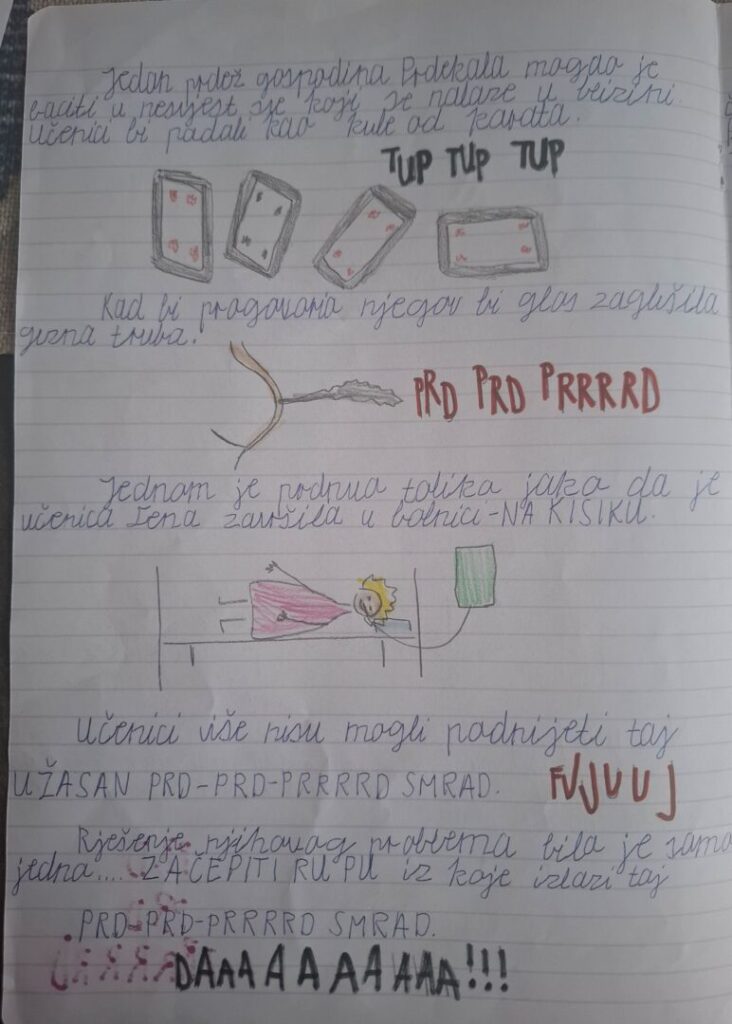 Jedan prdež gospodina Prdekala mogao je
baciti u nesvijest sve koji se nalaze u blizini.
Učenici bi padali kao kule od karata.
TUP TUP TUP
Kad bi progovorio njegov bi glas zaglušila
guzna truba.
PRD PRD PRRRRD
Jednom je prdnuo toliko jako da je
učenica Lena završila u bolnici-NA KISIKU.
Učenici više nisu mogli podnijeti taj
UŽASAN PRD-PRD-PRRRRD SMRAD.
FUJUUJ
Rješenje njihovog problema bilo je samo
jedno.... ZAČEPITI RUPU iz koje izlazi taj
PRD-PRD-PRRRRD SMRAD.
DAAAAAAAAAA!!!